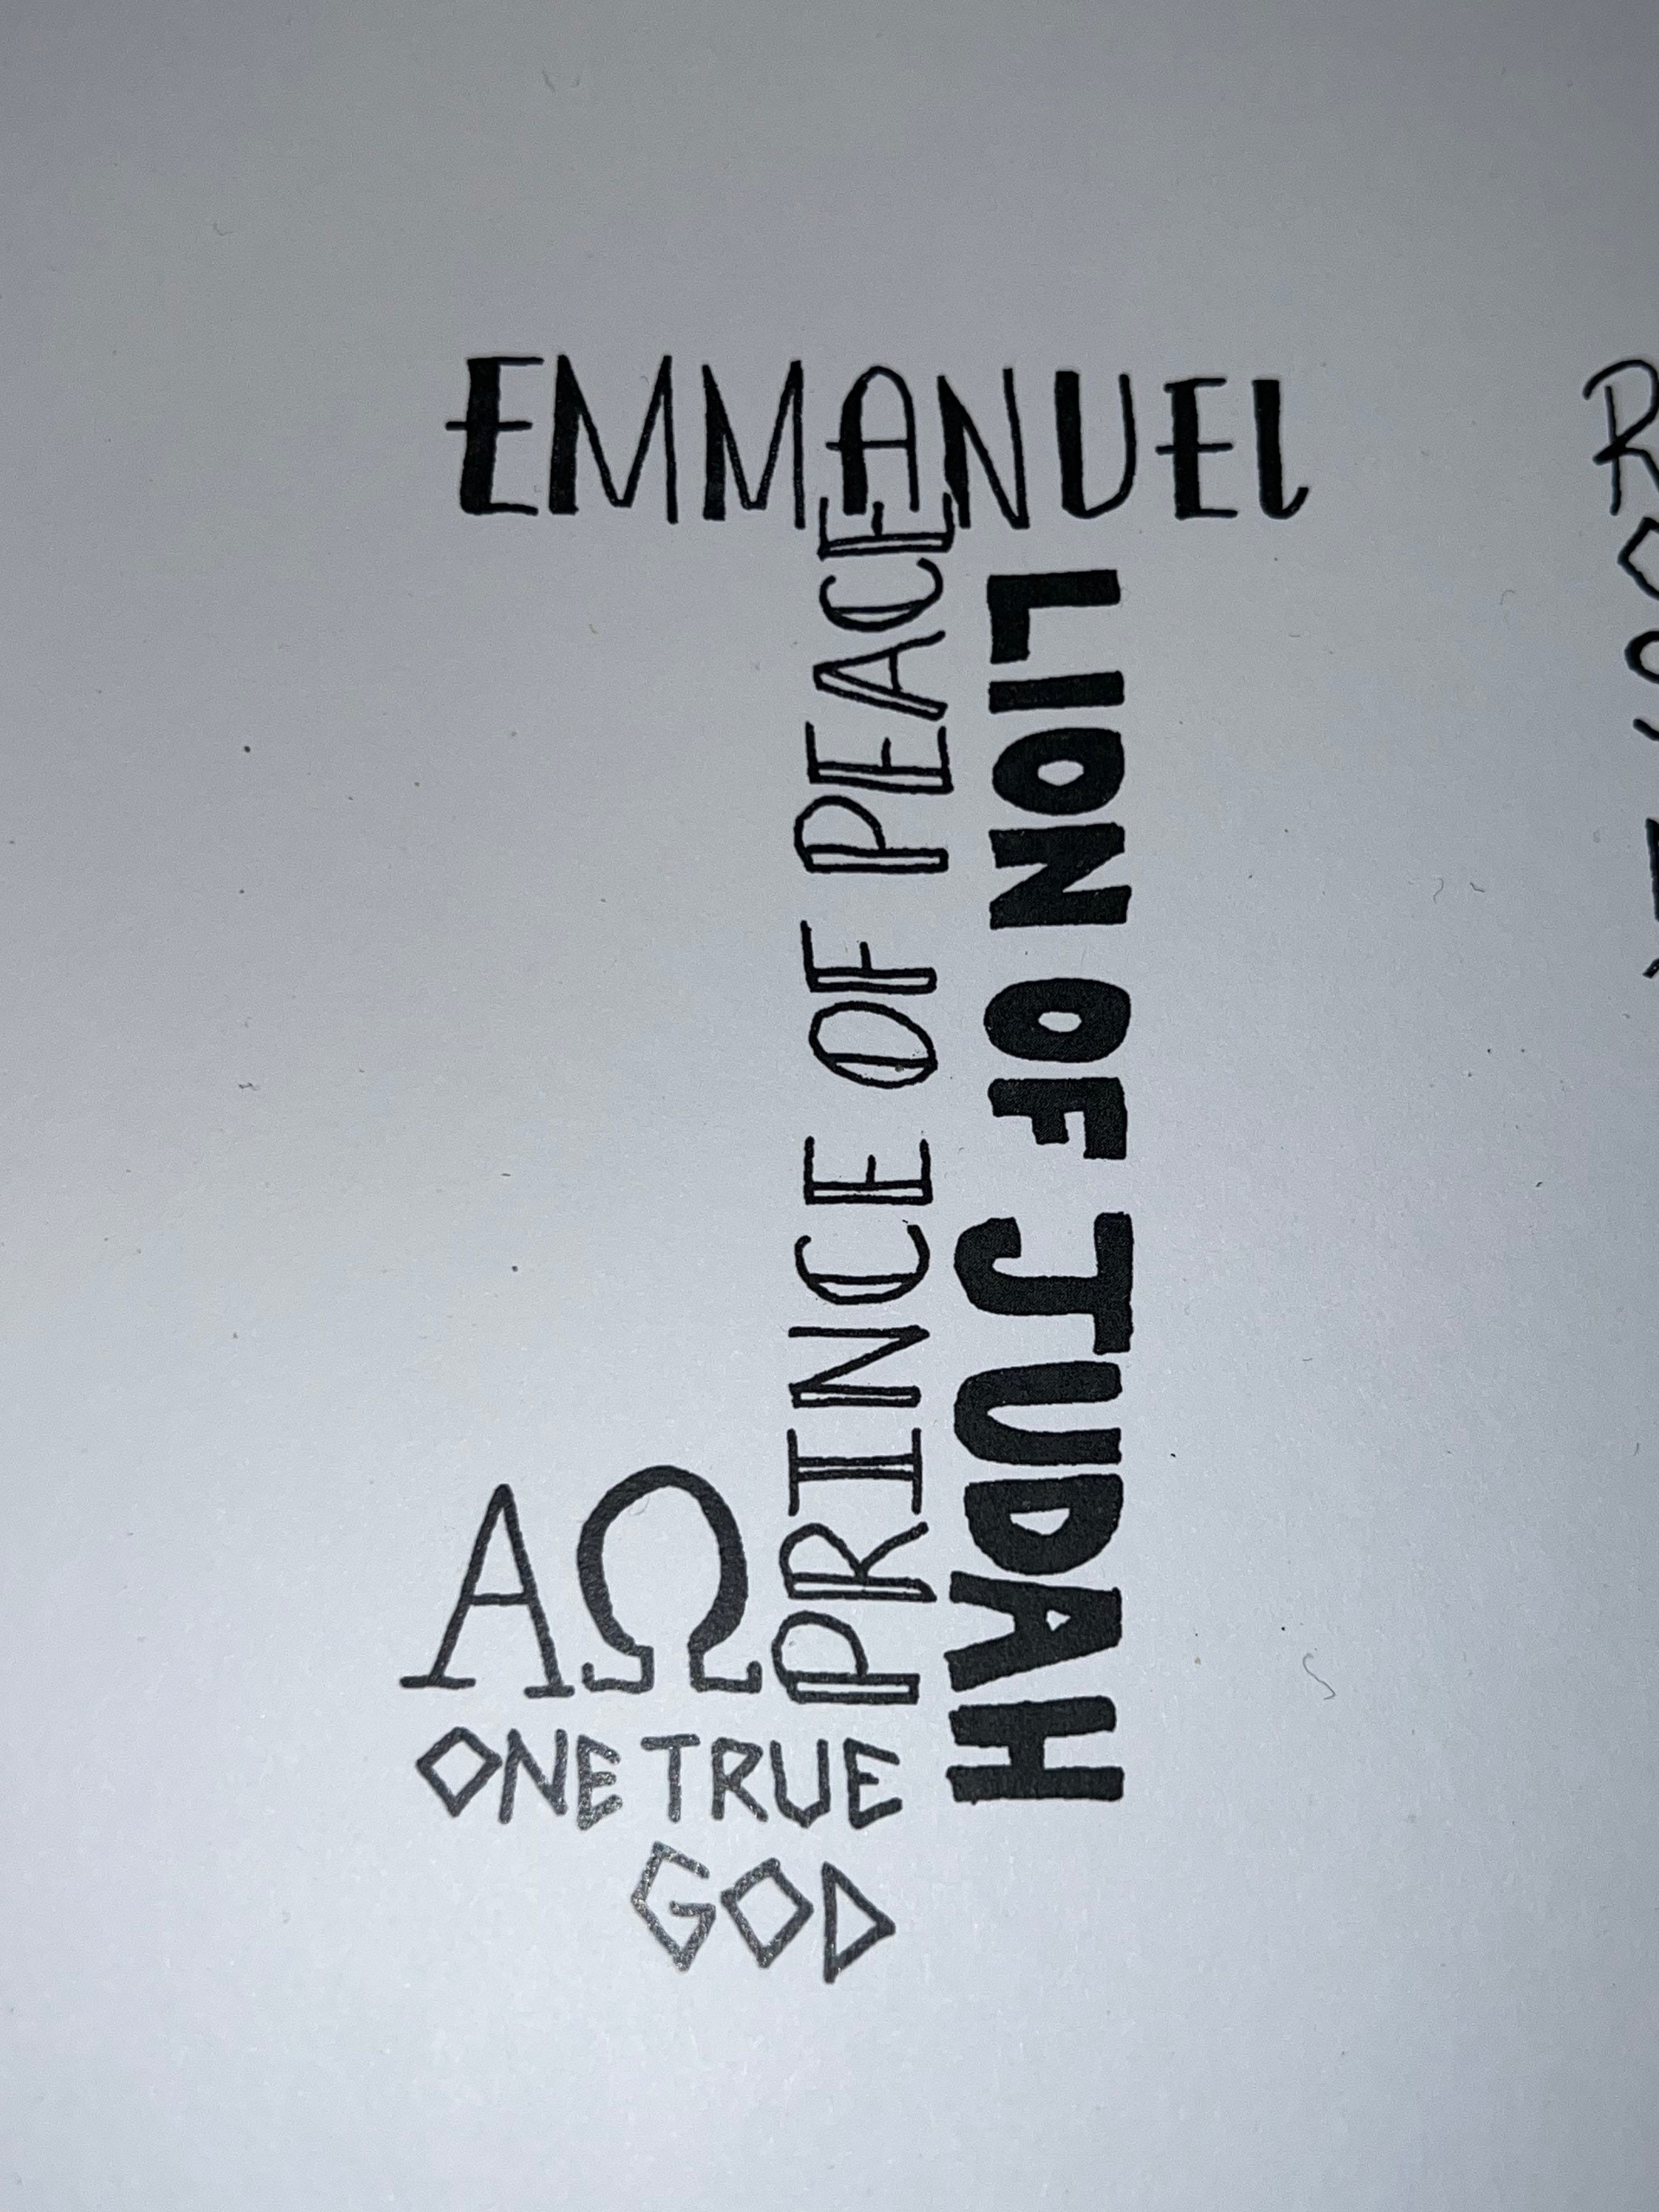 EMMANUEL
PRINCE OF PEACE
LION OF JUDAH
ΑΩ
ONE TRUE
GOD